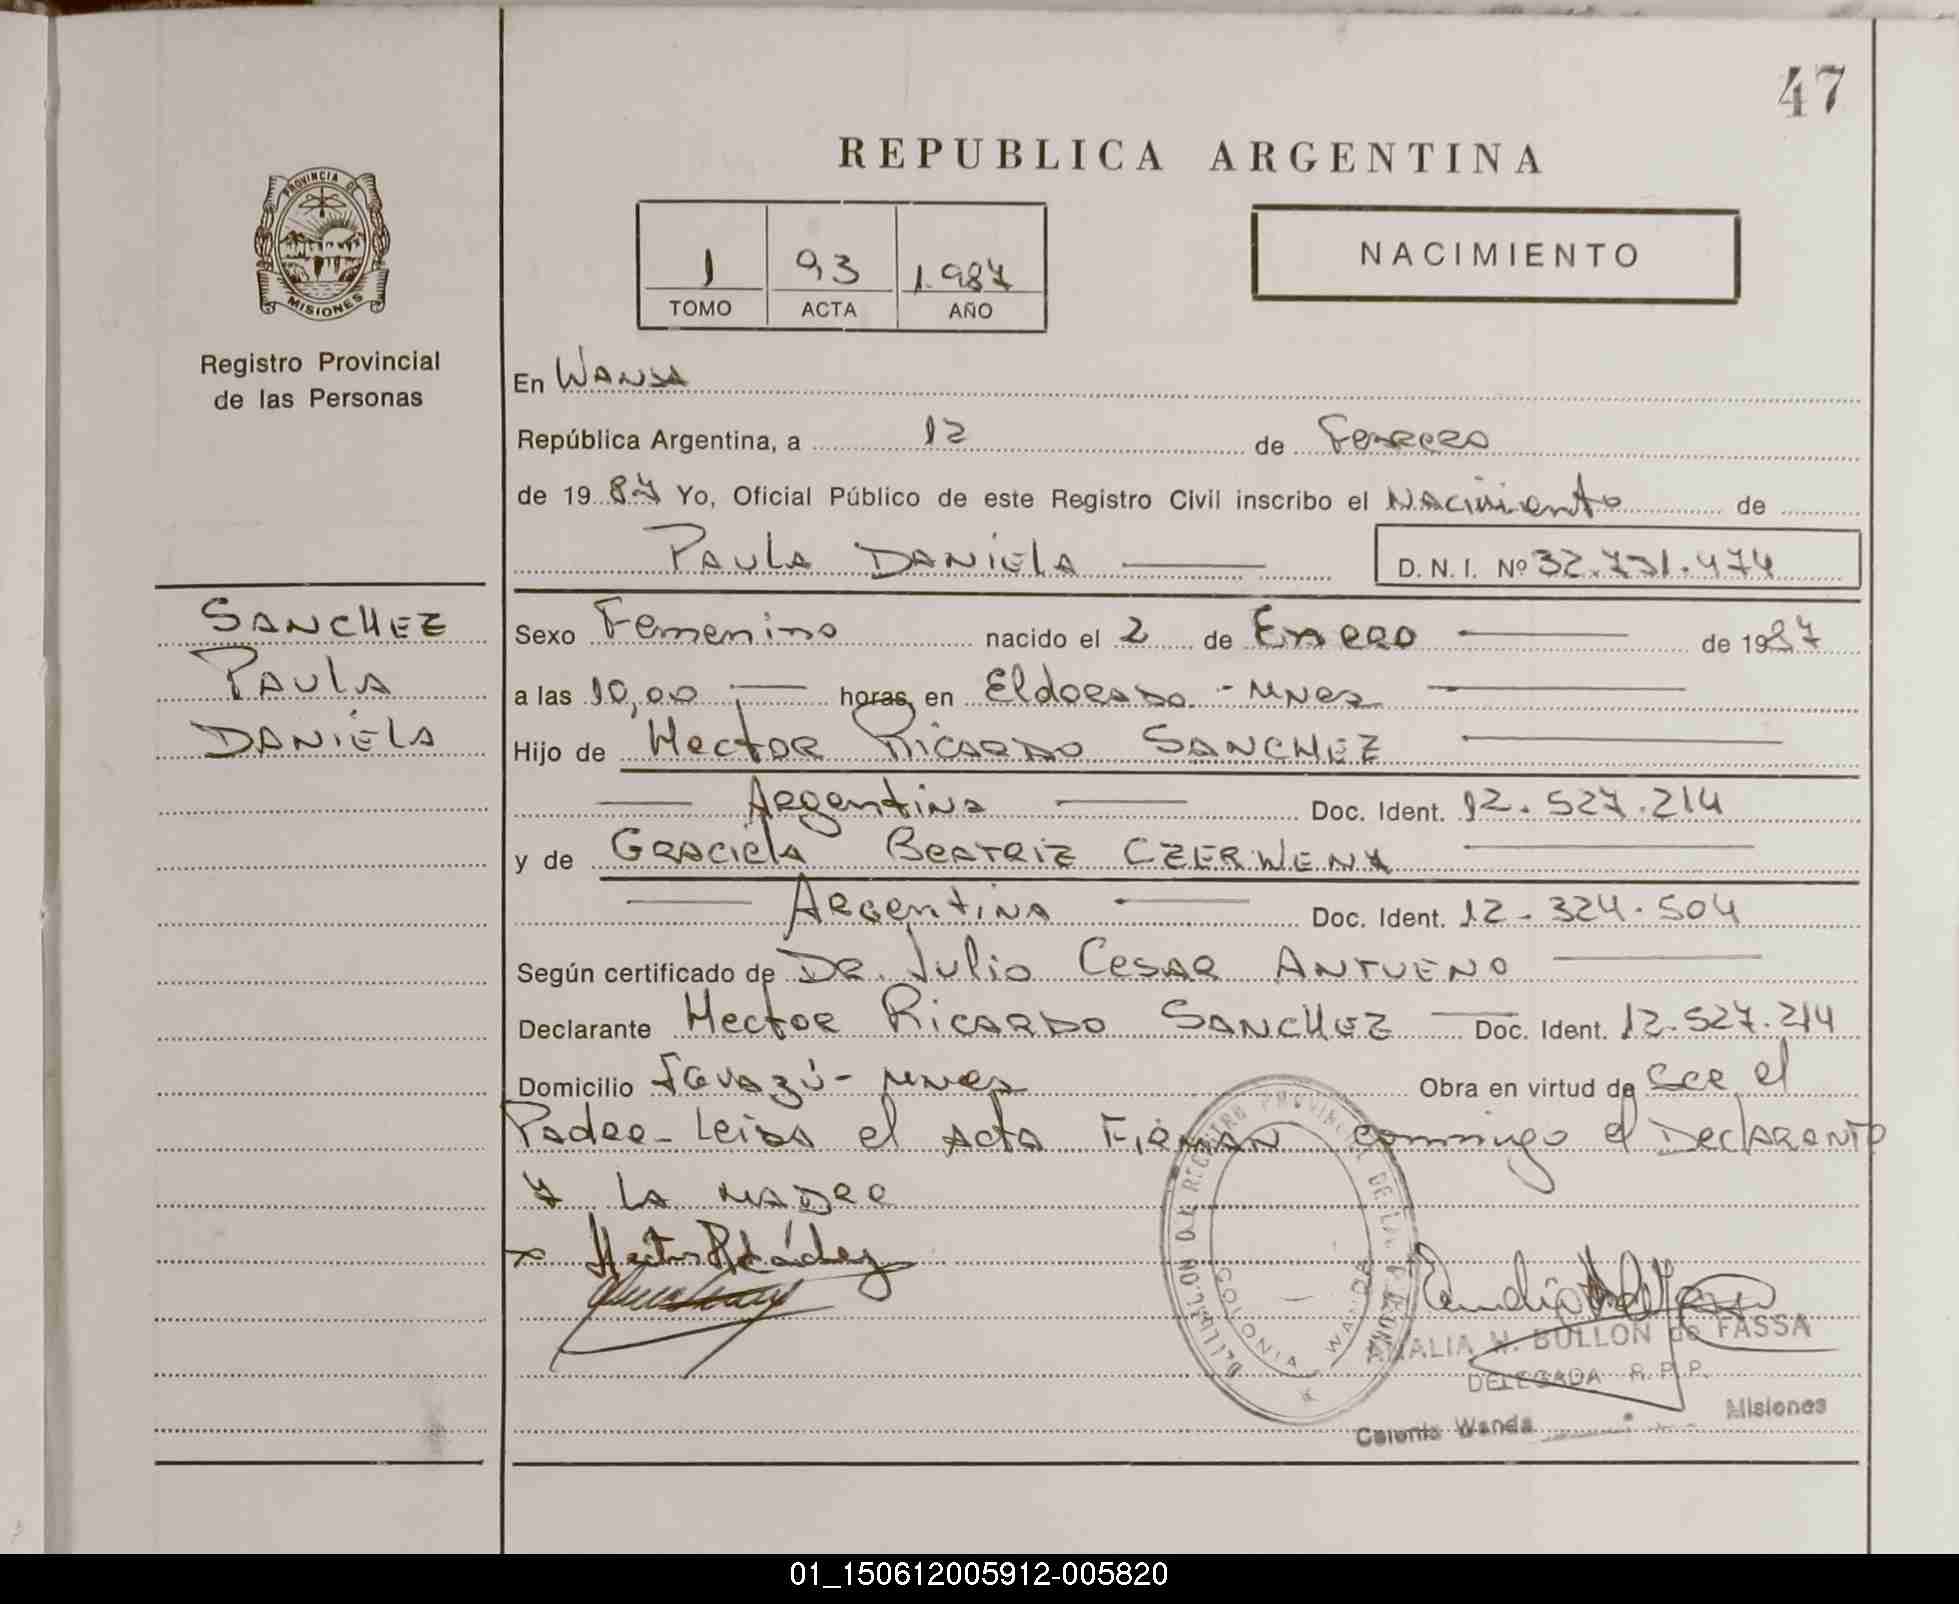 47
REPUBLICA ARGENTINA
PROVINCIA DE
MISIONES
1 93 1.987
TOMO ACTA AÑO
NACIMIENTO
Registro Provincial
de las Personas
En WANDA
República Argentina, a 12 de Febrero
de 19 87 Yo, Oficial Público de este Registro Civil inscribo el Nacimiento de
PAULA DANIELA D. N. I. Nº 32.731.474
SANCHEZ
PAULA
DANIELA
Sexo Femenino nacido el 2 de Enero de 1987
a las 10,00 horas, en Eldorado - Mnes
Hijo de Hector Ricardo SANCHEZ
Argentina Doc. Ident. 12.527.214
y de Graciela Beatriz CZERWENY
Argentina Doc. Ident. 12.324.504
Según certificado de DR. Julio Cesar ANTUENO
Declarante Hector Ricardo SANCHEZ Doc. Ident. 12.527.214
Domicilio Iguazú - Mnes Obra en virtud de ser el
Padre - Leida el Acta Firman conmigo el Declarante
y LA MADRE
DELEGACION DEL REGISTRO PROVINCIAL DE LAS PERSONAS
COLONIA WANDA
AMALIA N. BULLON de FASSA
DELEGADA R.P.P.
Colonia Wanda Misiones
01_150612005912-005820